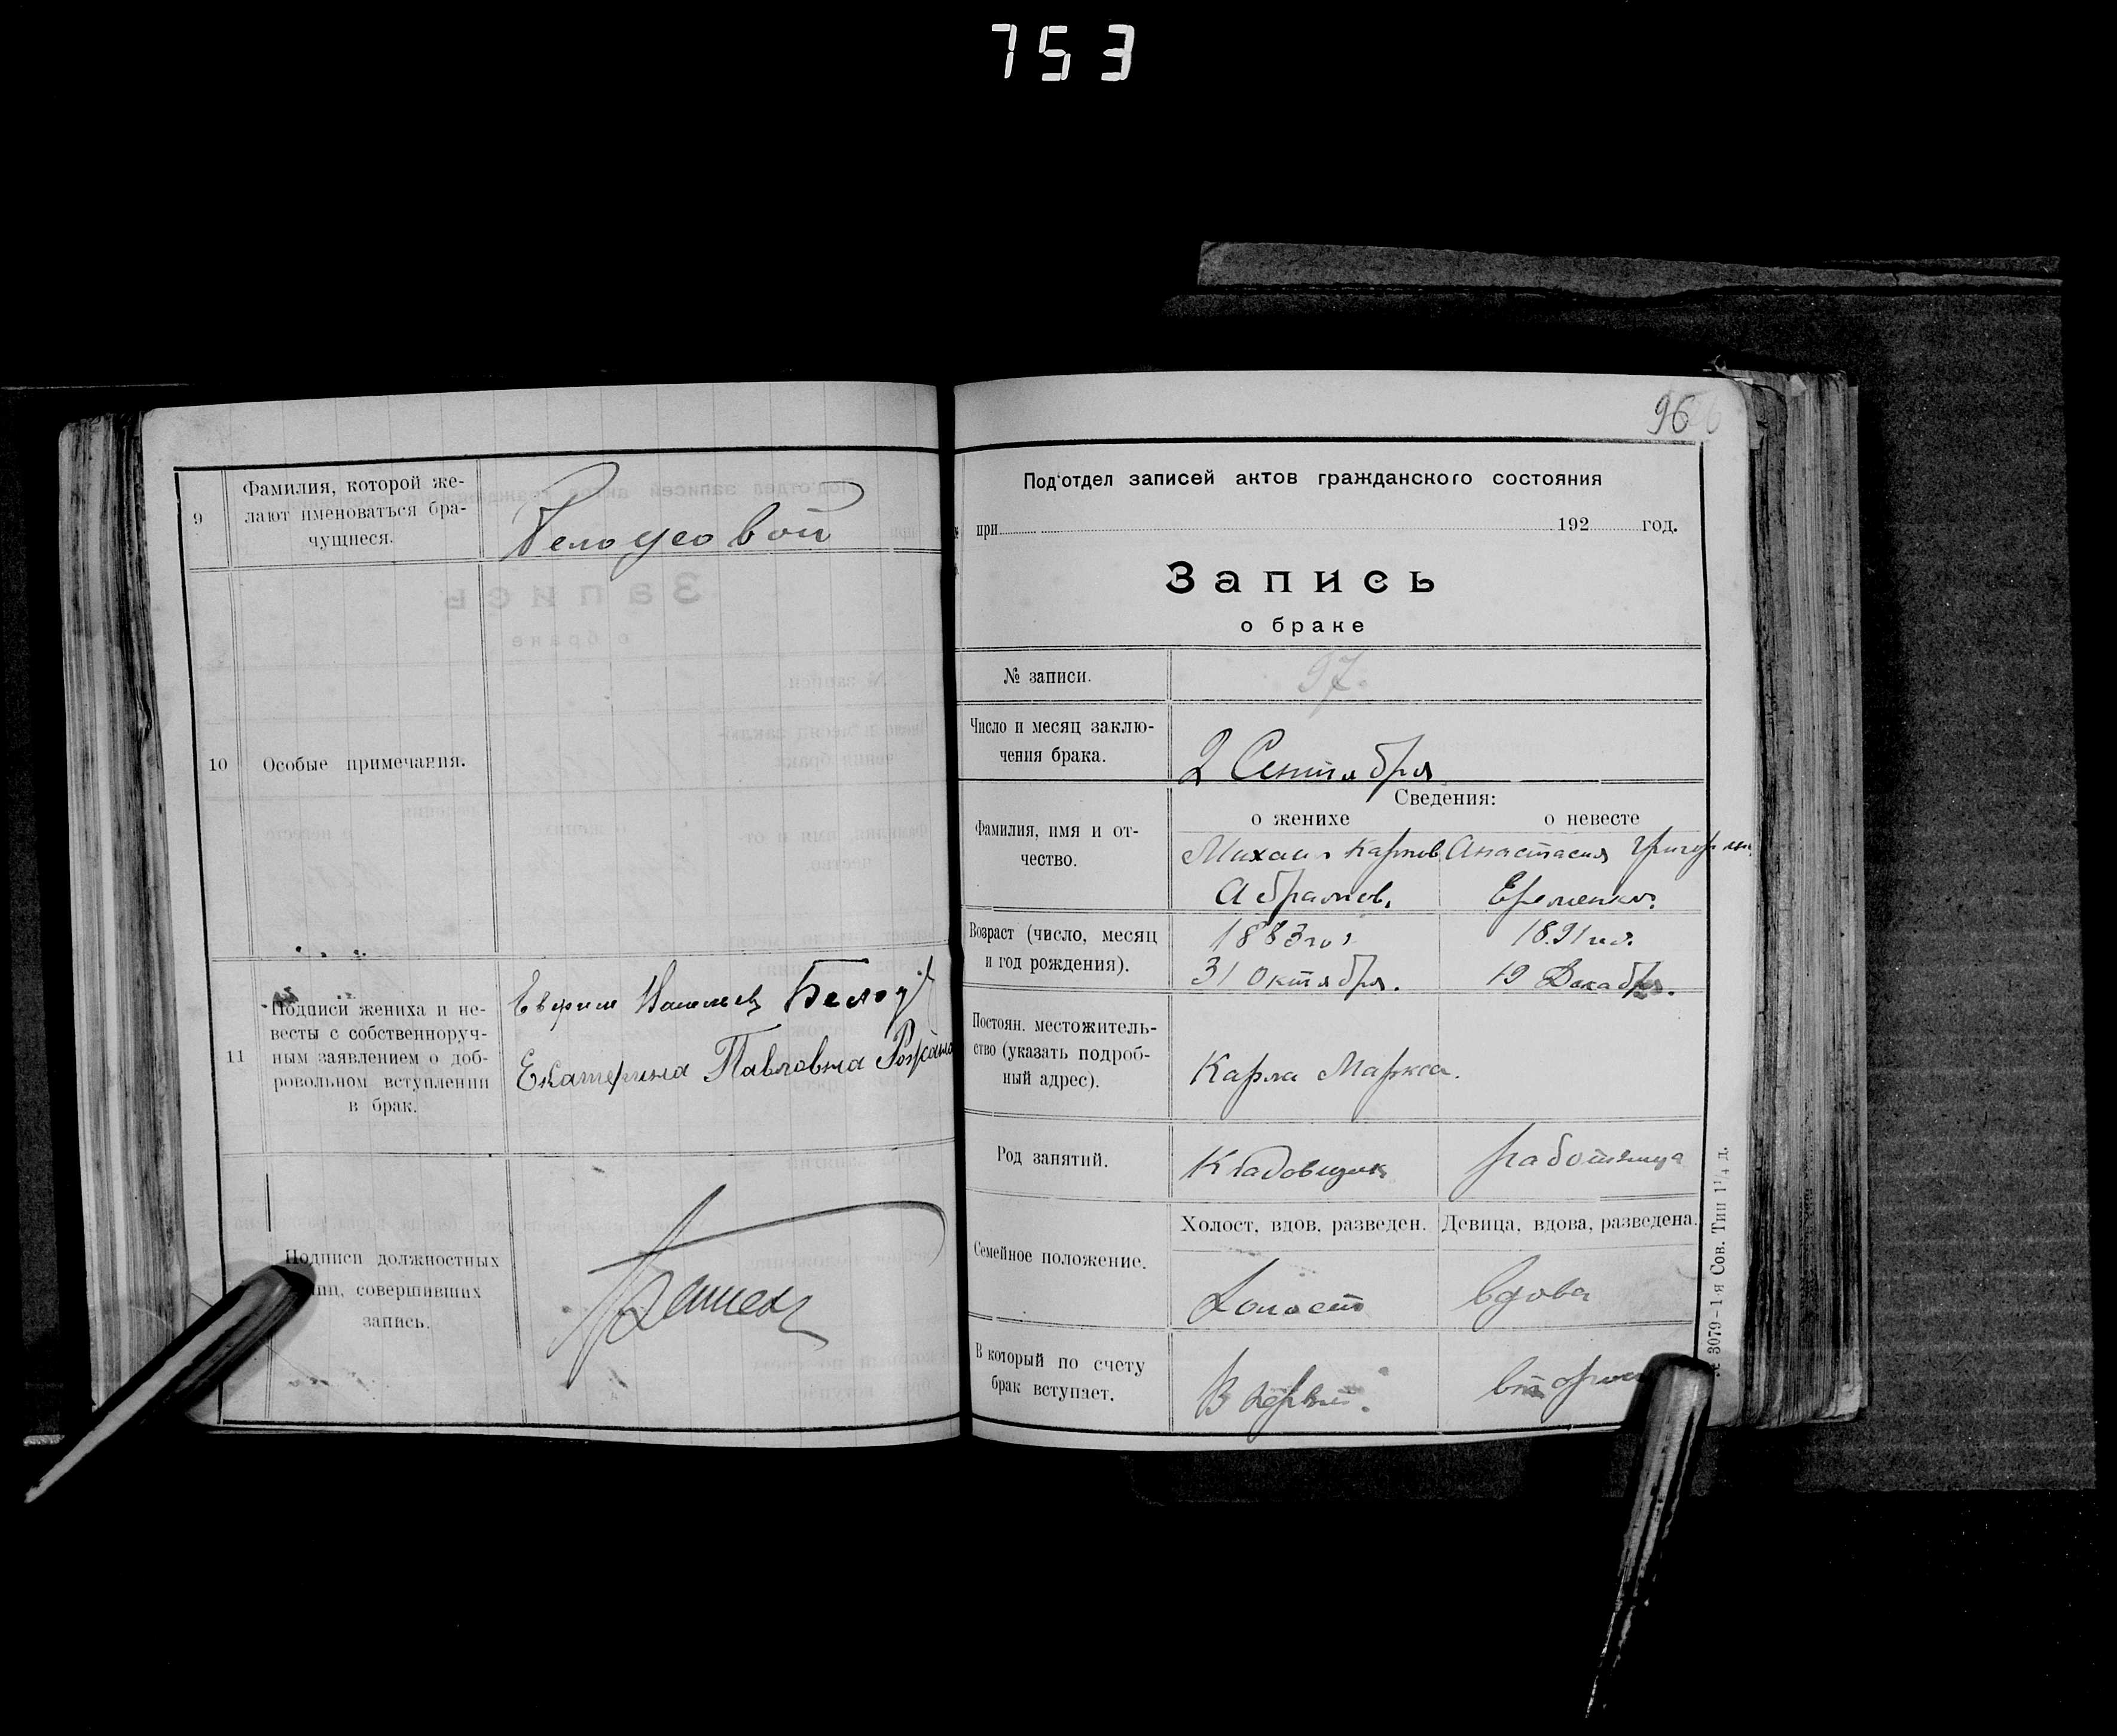 753
9
Фамилия, которой же-
лают именоваться бра-
чущиеся.
Белоусовой
10
Особые примечания.
11
Подписи жениха и не-
весты с собственноруч-
ным заявлением о доб-
ровольном вступлении
в брак.
Белоу
Екатерина Павловна
Подписи должностных
лиц, совершивших
запись.
96
Под'отдел записей актов гражданского состояния
при 192 год.
Запись
о браке
№ записи.
97.
Число и месяц заклю-
чения брака.
2 Сентября
Сведения:
о женихе
о невесте
Фамилия, имя и от-
чество.
Михаил Карпов
Абрамов.
Анастасия Григорьев
Еременко.
Возраст (число, месяц
и год рождения).
1883 го
31 Октября.
1891 го.
19 Декабря.
Постоян. местожитель-
ство (указать подроб-
ный адрес).
Карла Маркса.
Род занятий.
Кладовщик
работница
Семейное положение.
Холост, вдов, разведен.
Девица, вдова, разведена.
Холост
вдова
В который по счету
брак вступает.
В первый.
второй
№ 3079-1-я Сов. Тип 1¹/₄ д.